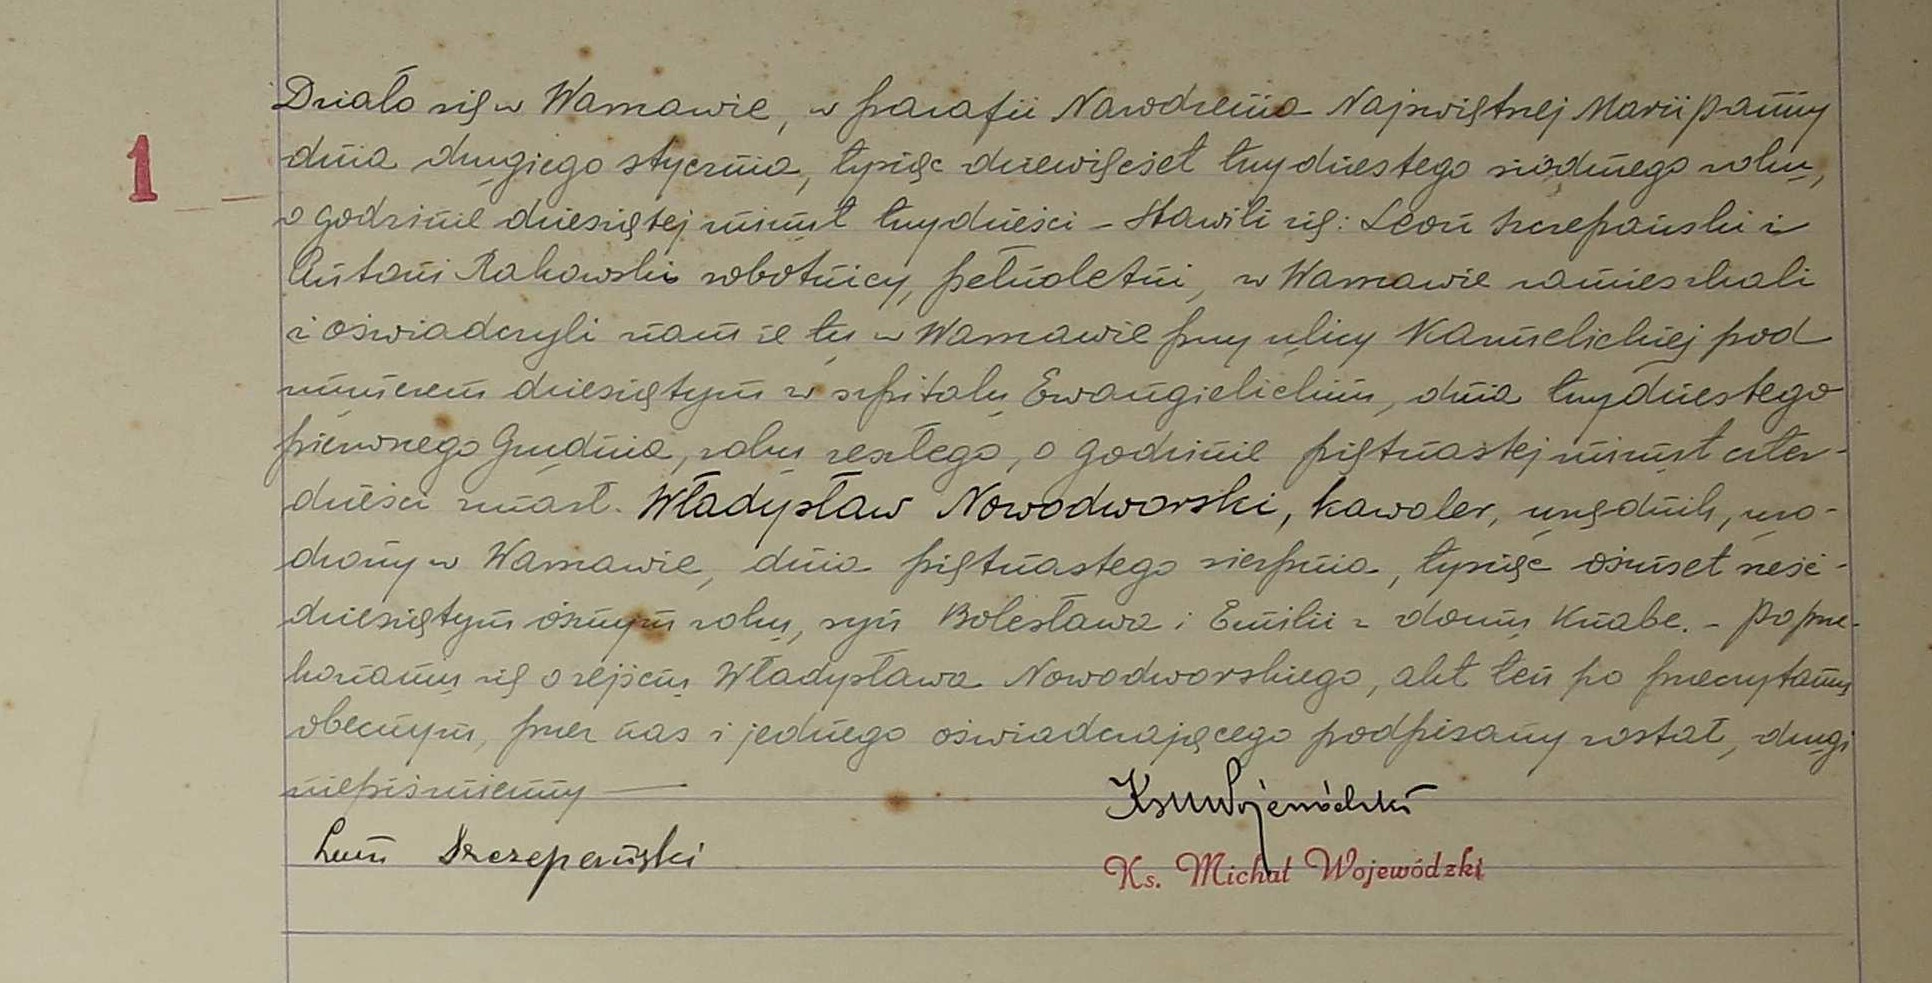 Działo się w Warszawie, w parafii Narodzenia Najświętszej Marii Panny
1
dnia drugiego stycznia, tysiąc dziewięćset trzydziestego siódmego roku,
o godzinie dziesiątej minut trzydzieści – Stawili się: Leon Szczepański i
Antoni Rakowski robotnicy, pełnoletni, w Warszawie zamieszkali
i oświadczyli nam że tu w Warszawie przy ulicy Karmelickiej pod
numerem dziesiątym w szpitalu Ewangielickim, dnia trzydziestego
pierwszego Grudnia, roku zeszłego, o godzinie piętnastej minut czter-
dzieści zmarł. Władysław Nowodworski, kawaler, urzędnik, uro-
dzony w Warszawie, dnia piętnastego sierpnia, tysiąc ośmset sześć-
dziesiątym ósmym roku, syn Bolesława i Emilii z domu Knabe. – Po prze-
konaniu się o zejściu Władysława Nowodworskiego, akt ten po przeczytaniu
obecnym, przez nas i jednego oświadczającego podpisany został, drugi
niepiśmienny —
Ks M Wojewódzki
Leon Szczepański
Ks. Michał Wojewódzki